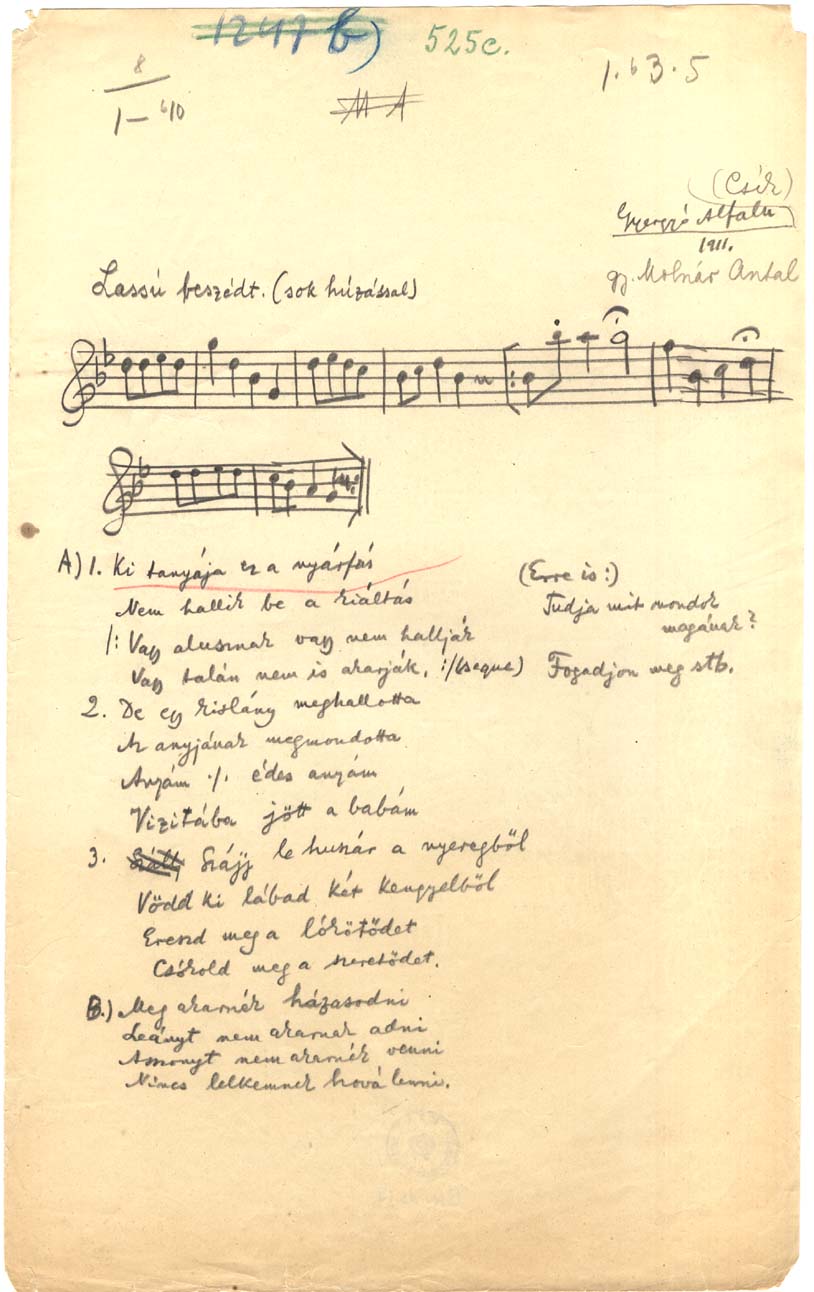 1247 b)
525c.
8
1— 610
MA
1. 6 3. 5
(Csík)
Gyergyó Alfalu
1911.
gy. Molnár Antal
Lassú beszédt. (sok húzással)
A) 1. Ki tanyája ez a nyárfás
Nem hallik be a kiáltás
/: Vagy alusznak vagy nem hallják
Vagy talán nem is akarják. :/ (seque)
(Erre is:)
Tudja mit mondok
magának?
Fogadjon meg stb.
2. De egy kislány meghallotta
Az anyjának megmondotta
Anyám ·/. édes anyám
Vizitába jött a babám
3. Szájj le huszár a nyeregből
Vödd ki lábad két kengyelből
Ereszd meg a lókötődet
Csókold meg a szeretődet.
B.) Meg akarnék házasodni
Leányt nem akarnak adni
Asszonyt nem akarnék venni
Nincs lelkemnek hová lenni.